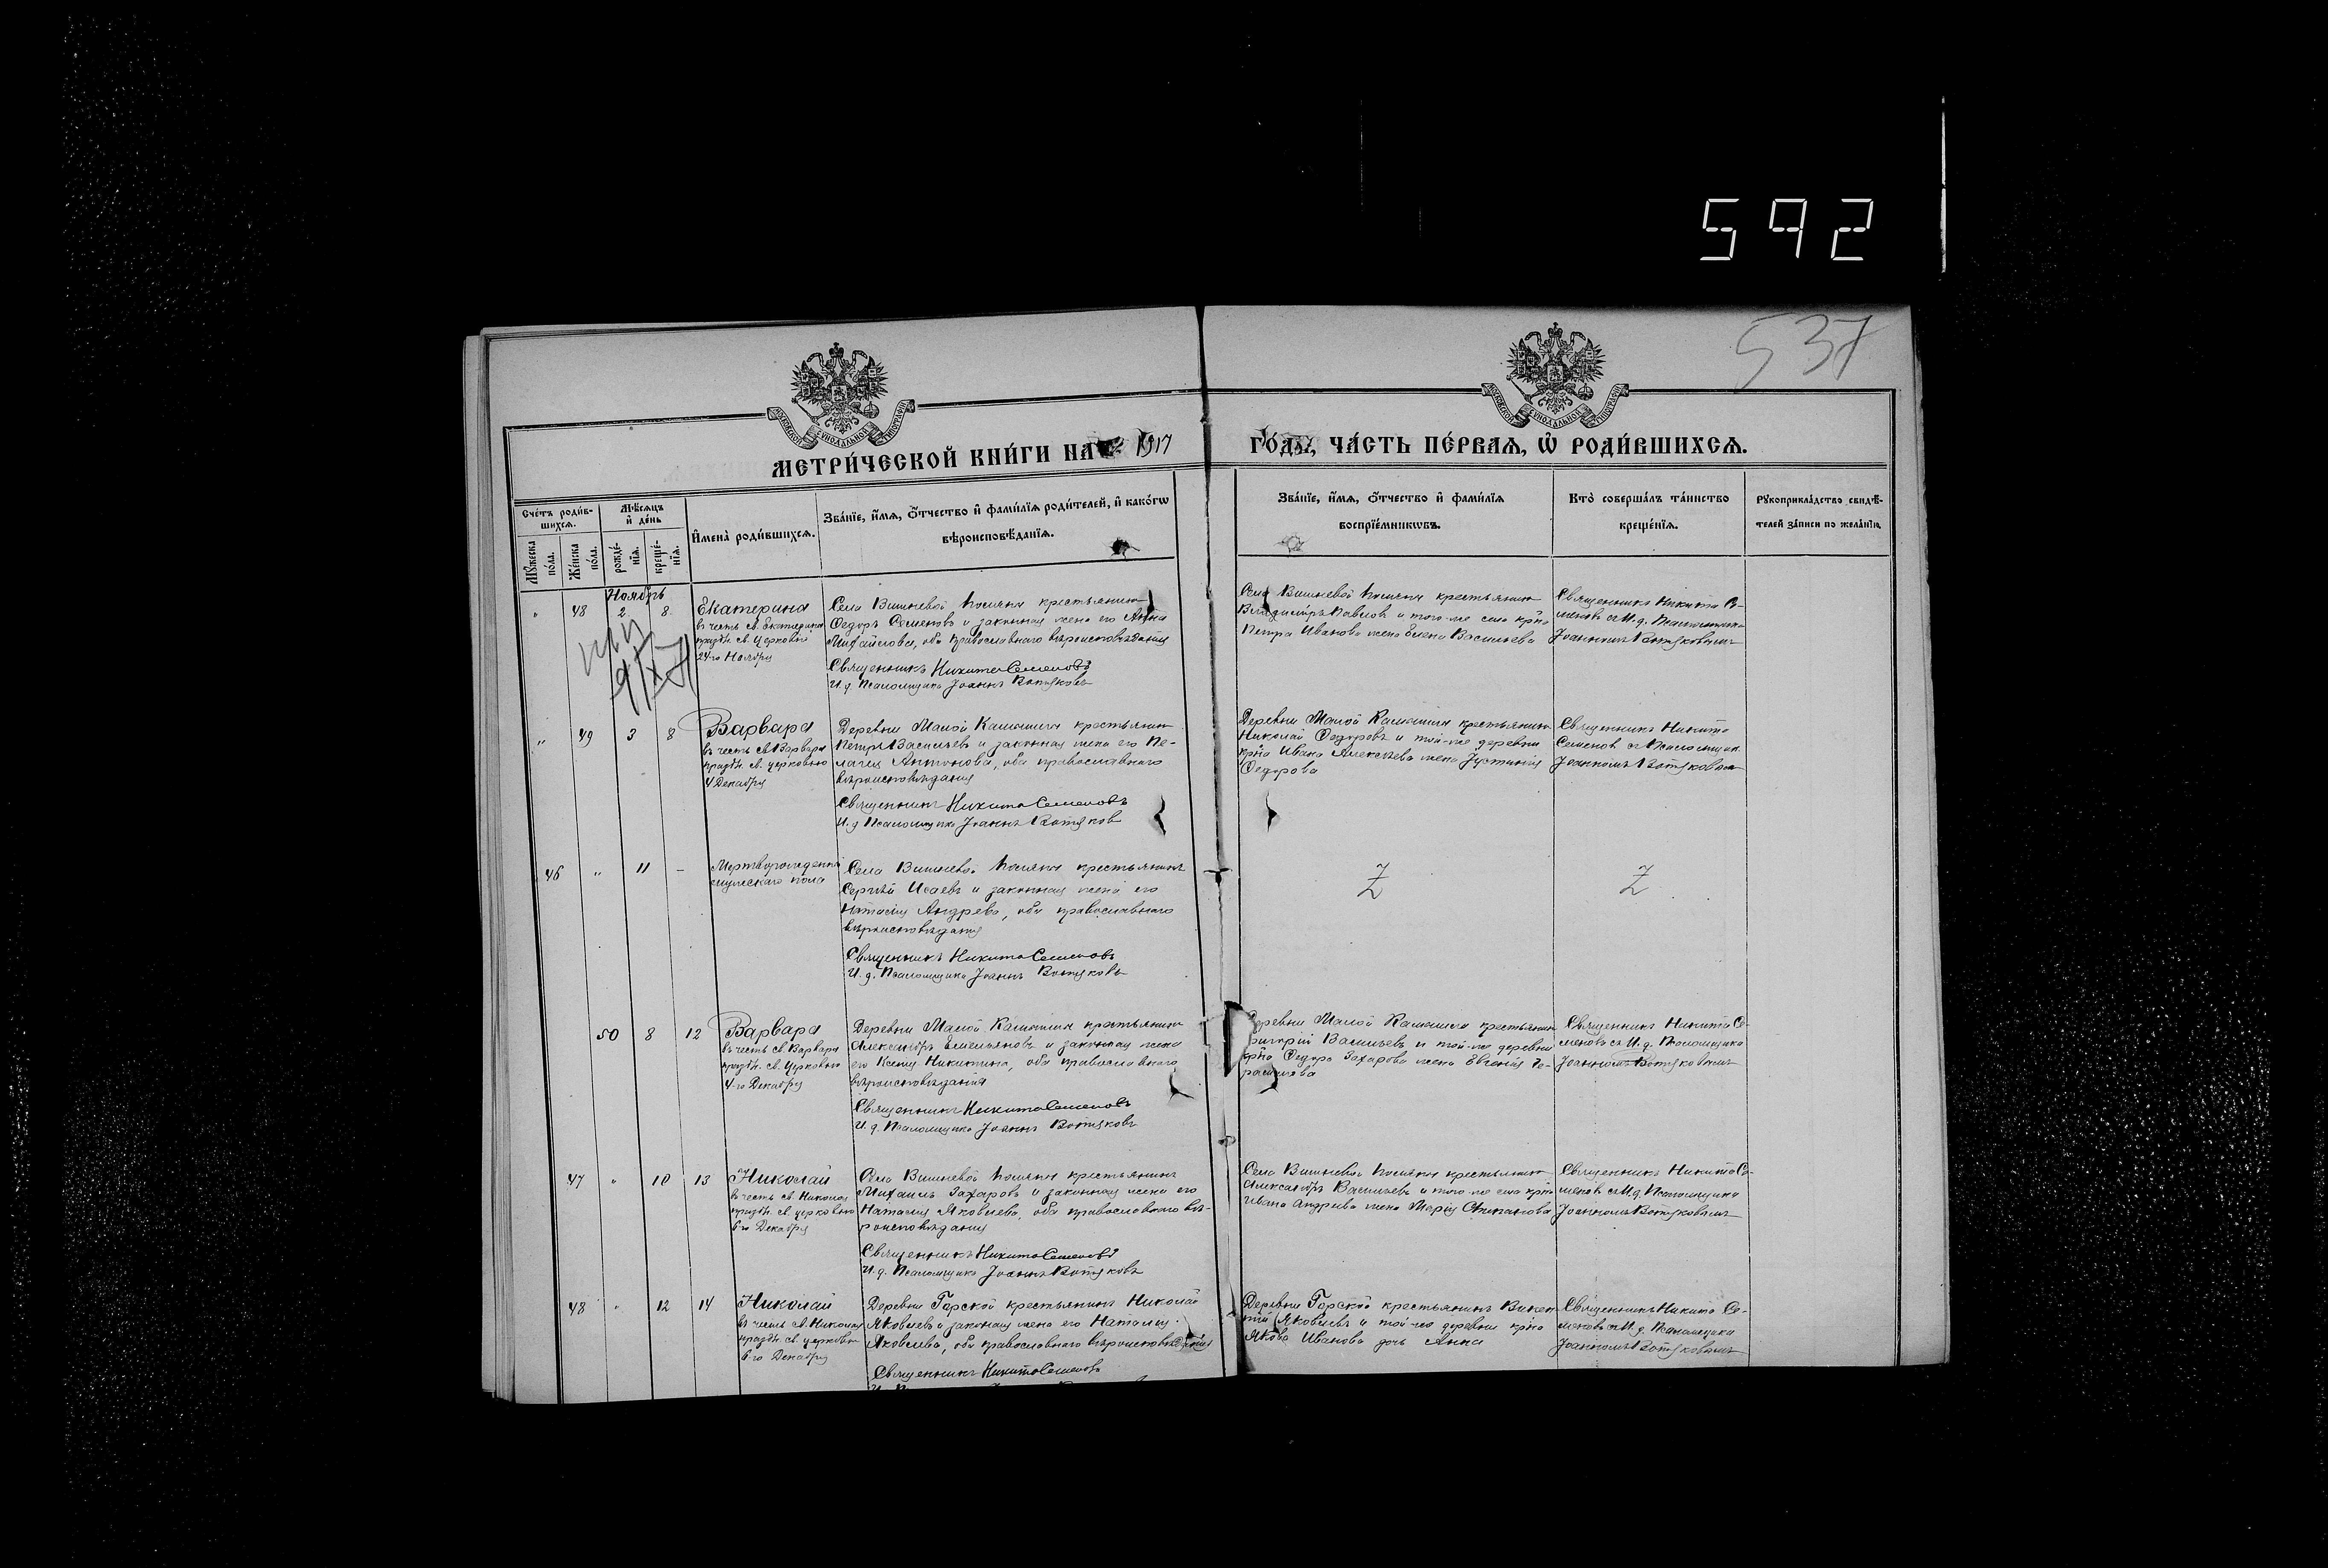 592
537
МОСКОВСКОЙ СѴНОДАЛЬНОЙ ТИПОГРАФІИ
МОСКОВСКОЙ СѴНОДАЛЬНОЙ ТИПОГРАФІИ
МЕТРИ́ЧЕСКОЙ КНИ́ГИ НА 1917 ГО́ДЪ, ЧА́СТЬ ПЕ́РВАѦ, Ѽ РОДИ́ВШИХСѦ.
Сче́тъ роди́в-
шихсѧ.
Мꙋжеска
по́ла.
Же́нска
по́ла.
Мѣ́сѧцъ
и҆ де́нь
рожде́-
нїѧ.
креще́-
нїѧ.
И҆мена̀ роди́вшихсѧ.
Зва́нїе, и҆́мѧ, ѻ҆́тчество и҆ фами́лїѧ роди́телей, и҆ како́гѡ
вѣроисповѣ́данїѧ.
Зва́нїе, и҆́мѧ, ѻ҆́тчество и҆ фами́лїѧ
воспрїе́мникѡвъ.
Кто̀ соверша́лъ та́инство
креще́нїѧ.
Рꙋкоприкла́дство свидѣ́-
телей за́писи по жела́нїю.
Ноябрь
" 48 2 8
Екатерина
въ честь св. Екатерины
праздн. св. церковью
24-го Ноября
Села Вишневой крестьянинъ
Федоръ Семеновъ и законная жена его Анна
Михайлова, оба православнаго вѣроисповѣданія
Священникъ Никита Семеновъ
И. д. Псаломщика Іоаннъ Вотяковъ
Села Вишневой крестьянинъ
Владиміръ Павловъ и того-же села кр-на
Петра Иванова жена Елена Васильева
Священникъ Никита Се-
меновъ съ И. д. Псаломщика
Іоанномъ Вотяковымъ
" 49 3 8
Варвара
въ честь св. Варвары
праздн. св. церковью
4 Декабря
Деревни Малой крестьянинъ
Петръ Васильевъ и законная жена его Пе-
лагія Антонова, оба православнаго
вѣроисповѣданія
Священникъ Никита Семеновъ
И. д. Псаломщика Іоаннъ Вотяковъ
Деревни Малой крестьянинъ
Николай Федоровъ и той-же деревни
кр-на Ивана Алексѣева жена Іустинія
Федорова
Священникъ Никита
Семеновъ съ Псаломщик.
Іоанномъ Вотяковымъ
46 " 11 -
Мертворожденный
мужескаго пола
Села Вишневой крестьянинъ
Сергѣй Исаевъ и законная жена его
Наталія Андреева, оба православнаго
вѣроисповѣданія
Священникъ Никита Семеновъ
И. д. Псаломщика Іоаннъ Вотяковъ
Z
Z
50 8 12
Варвара
въ честь св. Варвары
праздн. св. церковью
4-го Декабря
Деревни Малой крестьянинъ
Александръ Емельяновъ и законная жена
его Ксенія Никитина, оба православнаго
вѣроисповѣданія
Священникъ Никита Семеновъ
И. д. Псаломщика Іоаннъ Вотяковъ
Деревни Малой крестьянинъ
Григорій Васильевъ и той-же деревни
кр-на Федора Захарова жена Евгенія Ге-
расимова
Священникъ Никита Се-
меновъ съ И. д. Псаломщика
Іоанномъ Вотяковымъ
47 " 10 13
Николай
въ честь св. Николая
праздн. св. церковью
6-го Декабря
Села Вишневой крестьянинъ
Михаилъ Захаровъ и законная жена его
Наталія Яковлева, оба православнаго вѣ-
роисповѣданія
Священникъ Никита Семеновъ
И. д. Псаломщика Іоаннъ Вотяковъ
Села Вишневой крестьянинъ
Александръ Васильевъ и того-же села кр-на
Ивана Андреева жена Марія Степанова
Священникъ Никита Се-
меновъ съ И. д. Псаломщика
Іоанномъ Вотяковымъ
48 " 12 14
Николай
въ честь св. Николая
праздн. св. церковью
6-го Декабря
Деревни Горской крестьянинъ Николай
Яковлевъ и законная жена его Наталія
Яковлева, оба православнаго вѣроисповѣданія
Священникъ Никита Семеновъ
Деревни Горской крестьянинъ Викен-
тій Яковлевъ и той-же деревни кр-на
Якова Иванова дочь Анна
Священникъ Никита Се-
меновъ съ И. д. Псаломщика
Іоанномъ Вотяковымъ